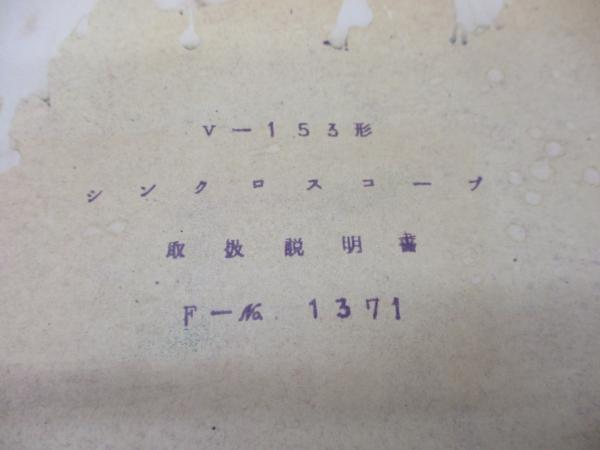 V－153形
シンクロスコープ
取扱説明書
F－No. 1371